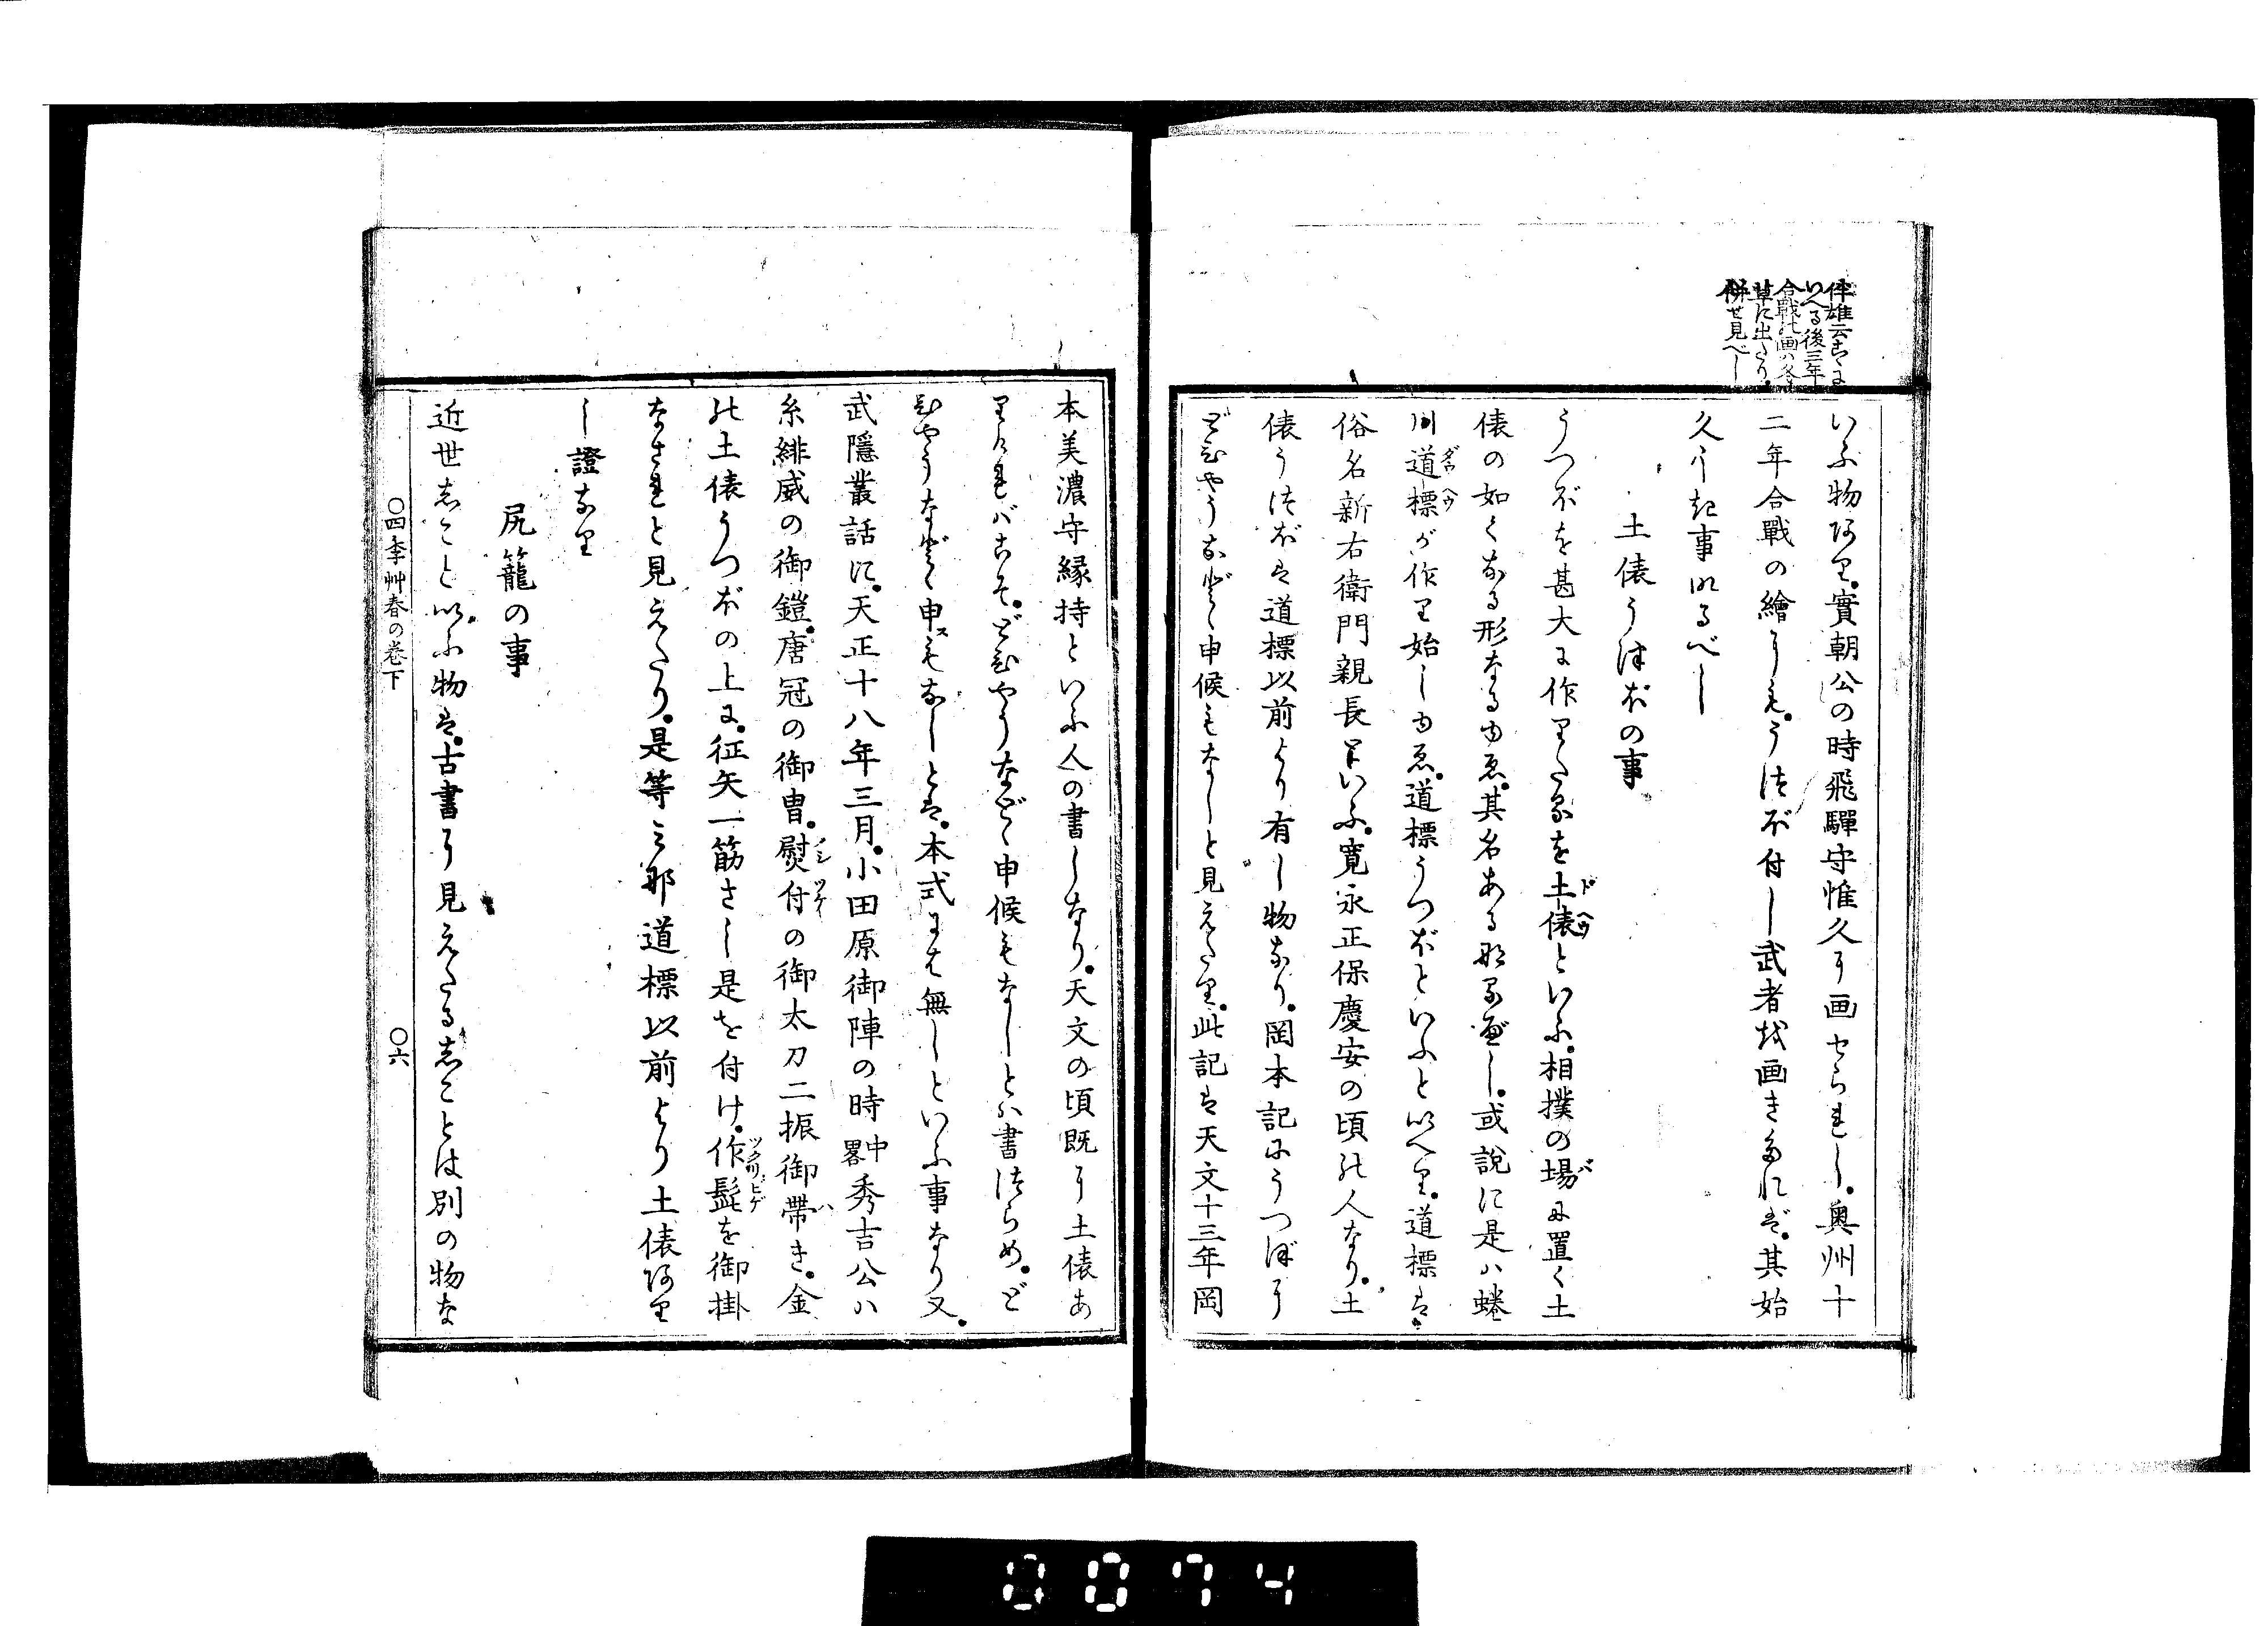 倅雄云こゝに
いへる後三年
合戰の画ハ冬
草に出たり
併せ見べし
いふ物あり。實朝公の時飛驒守惟久に画せられし。奥州十
二年合戰の繪にも。うつぼ付し武者を画きたれば。其始
久しき事なるべし
土俵うつぼの事
うつぼを甚大に作りたるを土俵といふ。相撲の場に置く土
俵の如くなる形なるゆゑ。其名あるなるべし。或説に是ハ蜷
川道標が作り始しゆゑ。道標うつぼといふといへり。道標は
俗名新右衛門親長といふ。寛永正保慶安の頃の人なり。土
俵うつぼは道標以前より有し物なり。岡本記にうつぼに
どひやうなどゝ申候もなしと見えたり。此記は天文十三年岡
本美濃守縁持といふ人の書しなり。天文の頃既に土俵あ
りければこそ。どひやうなどゝ申候もなしとハ書つらめ。ど
ひやうなどゝ申スもなしとは。本式には無しといふ事なり又。
武隱叢話に。天正十八年三月。小田原御陣の時中畧秀吉公ハ
糸緋威の御鎧。唐冠の御冑。熨付の御太刀二振御帶き。金
の土俵うつぼの上に。征矢一筋さし是を付け。作髭を御掛
なされと見えたり。是等みな道標以前より土俵あり
し證なり
尻籠の事
近世しこといふ物は。古書に見えたるしことは別の物な
〇四季艸春の巻下
〇六
0074